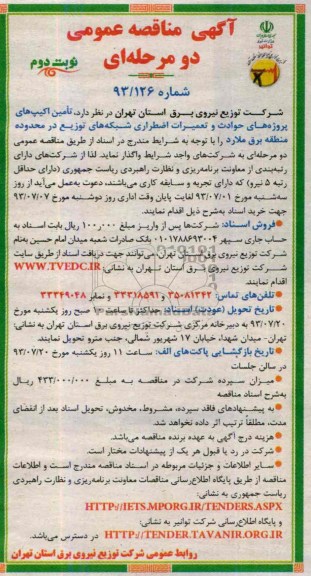 آگهی مناقصه عمومی
دو مرحله‌ای
نوبت دوم
شماره ۹۳/۱۲۶
شرکت توزیع نیروی برق استان تهران در نظر دارد، تأمین اکیپ‌های
پروژه‌های حوادث و تعمیرات اضطراری شبکه‌های توزیع در محدوده
منطقه برق ملارد را با توجه به شرایط مندرج در اسناد از طریق مناقصه عمومی
دو مرحله‌ای به شرکت‌های واجد شرایط واگذار نماید. لذا از شرکت‌های دارای
رتبه‌بندی از معاونت برنامه‌ریزی و نظارت راهبردی ریاست جمهوری (دارای حداقل
رتبه ۵ نیرو) که دارای تجربه و سابقه کاری می‌باشند، دعوت به‌عمل می‌آید از روز
سه‌شنبه مورخ ۹۳/۰۷/۰۱ لغایت پایان وقت اداری روز دوشنبه مورخ ۹۳/۰۷/۰۷
جهت خرید اسناد به‌شرح ذیل اقدام نمایند.
فروش اسناد: شرکت‌ها پس از واریز مبلغ ۱۰۰٫۰۰۰ ریال بابت اسناد به
حساب جاری سپهر ۰۱۰۱۷۸۸۶۹۳۰۰۴ بانک صادرات شعبه میدان امام حسین به‌نام
شرکت توزیع نیروی برق استان تهران می‌توانند جهت دریافت اسناد از طریق سایت
شرکت توزیع نیروی برق استان تهران به نشانی: WWW.TVEDC.IR
اقدام نمایند.
تلفن‌های تماس: ۳۵۰۸۱۳۴۲ و ۳۳۳۱۸۵۹۱ و نمابر ۳۳۳۴۹۰۴۸
تاریخ تحویل (عودت) اسناد: حداکثر تا ساعت ۱۰ صبح روز یکشنبه مورخ
۹۳/۰۷/۲۰ به دبیرخانه مرکزی شرکت توزیع نیروی برق استان تهران به نشانی:
تهران- میدان شهدا، خیابان ۱۷ شهریور شمالی، جنب مترو تحویل نمایند.
تاریخ بازگشایی پاکت‌های الف: ساعت ۱۱ روز یکشنبه مورخ ۹۳/۰۷/۲۰
در سالن جلسات
میزان سپرده شرکت در مناقصه به مبلغ ۴۳۳/۰۰۰/۰۰۰ ریال
به‌شرح اسناد مناقصه
به پیشنهادهای فاقد سپرده، مشروط، مخدوش، تحویل اسناد بعد از انقضای
مدت، مطلقاً ترتیب اثر داده نخواهد شد.
هزینه درج آگهی به عهده برنده مناقصه می‌باشد.
شرکت در رد یا قبول هر یک از پیشنهادات مختار است.
سایر اطلاعات و جزئیات مربوطه در اسناد مناقصه مندرج است و اطلاعات
مناقصه از طریق پایگاه اطلاع‌رسانی مناقصات معاونت برنامه‌ریزی و نظارت راهبردی
ریاست جمهوری به نشانی:
HTTP://IETS.MPORG.IR/TENDERS.ASPX
و پایگاه اطلاع‌رسانی شرکت توانیر به نشانی:
HTTP://TENDER.TAVANIR.ORG.IR در دسترس می‌باشد.
روابط عمومی شرکت توزیع نیروی برق استان تهران